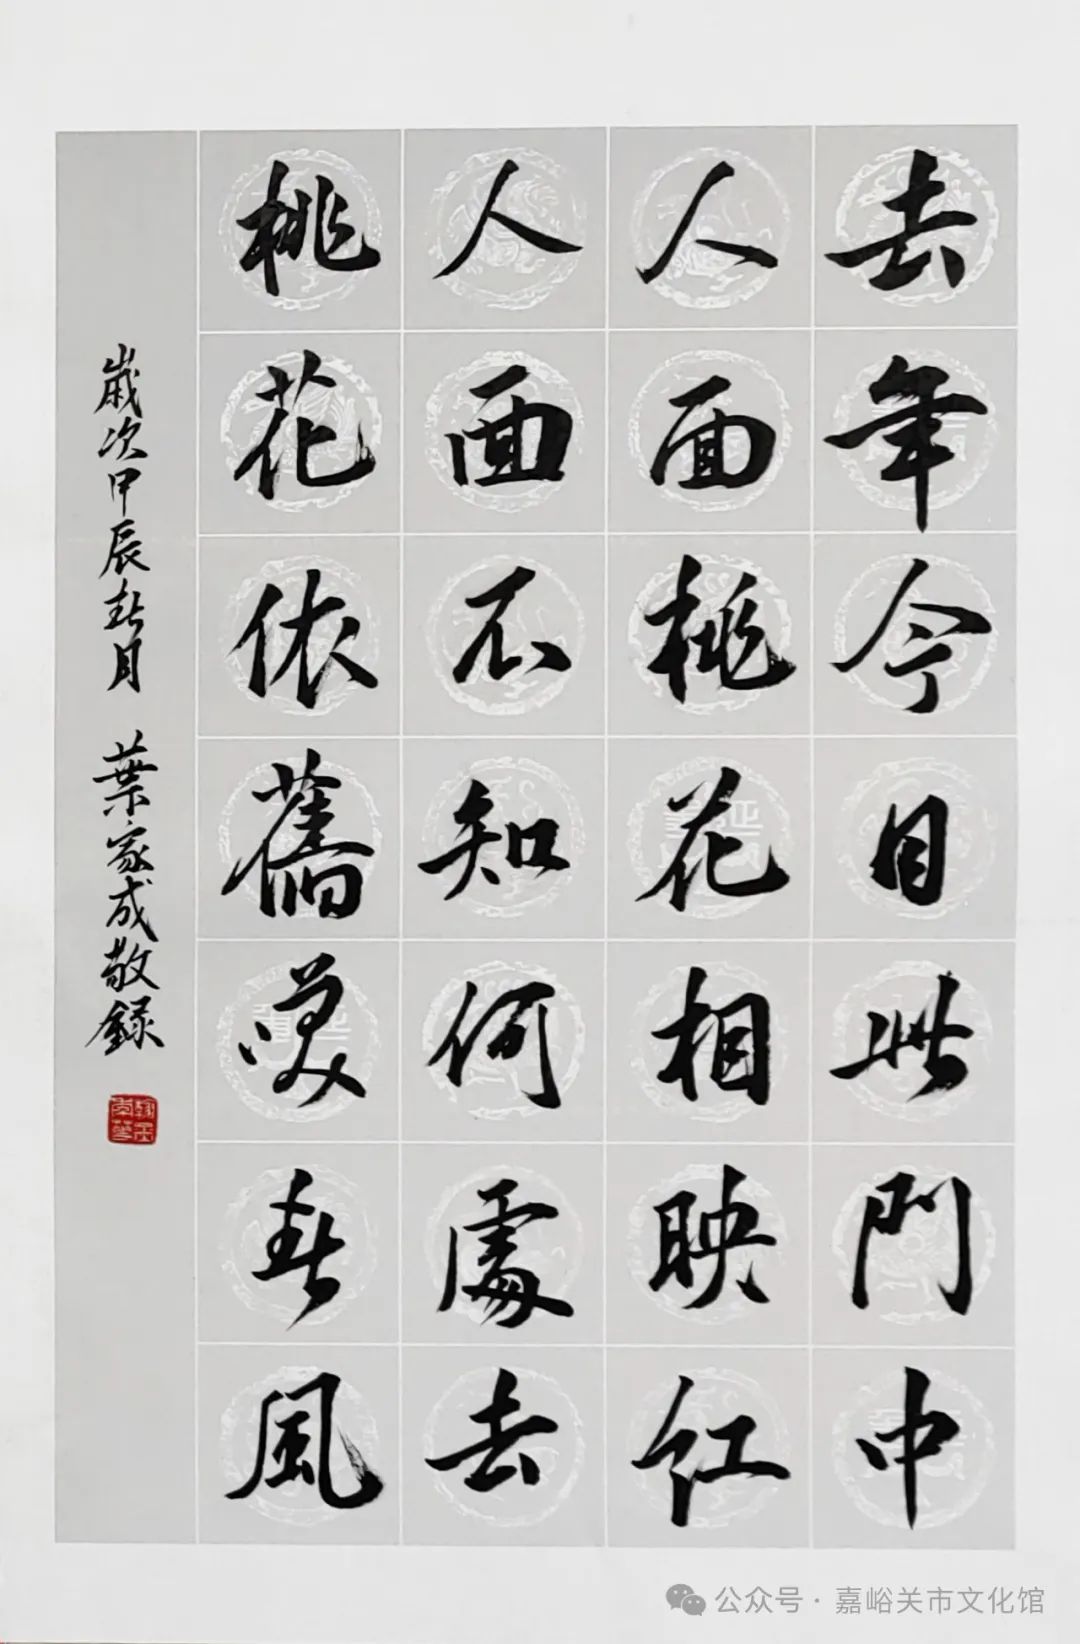 去年今日此門中
人面桃花相映红
人面不知何處去
桃花依舊笑春風
歲次甲辰春月 葉家成敬録
公众号·嘉峪关市文化馆